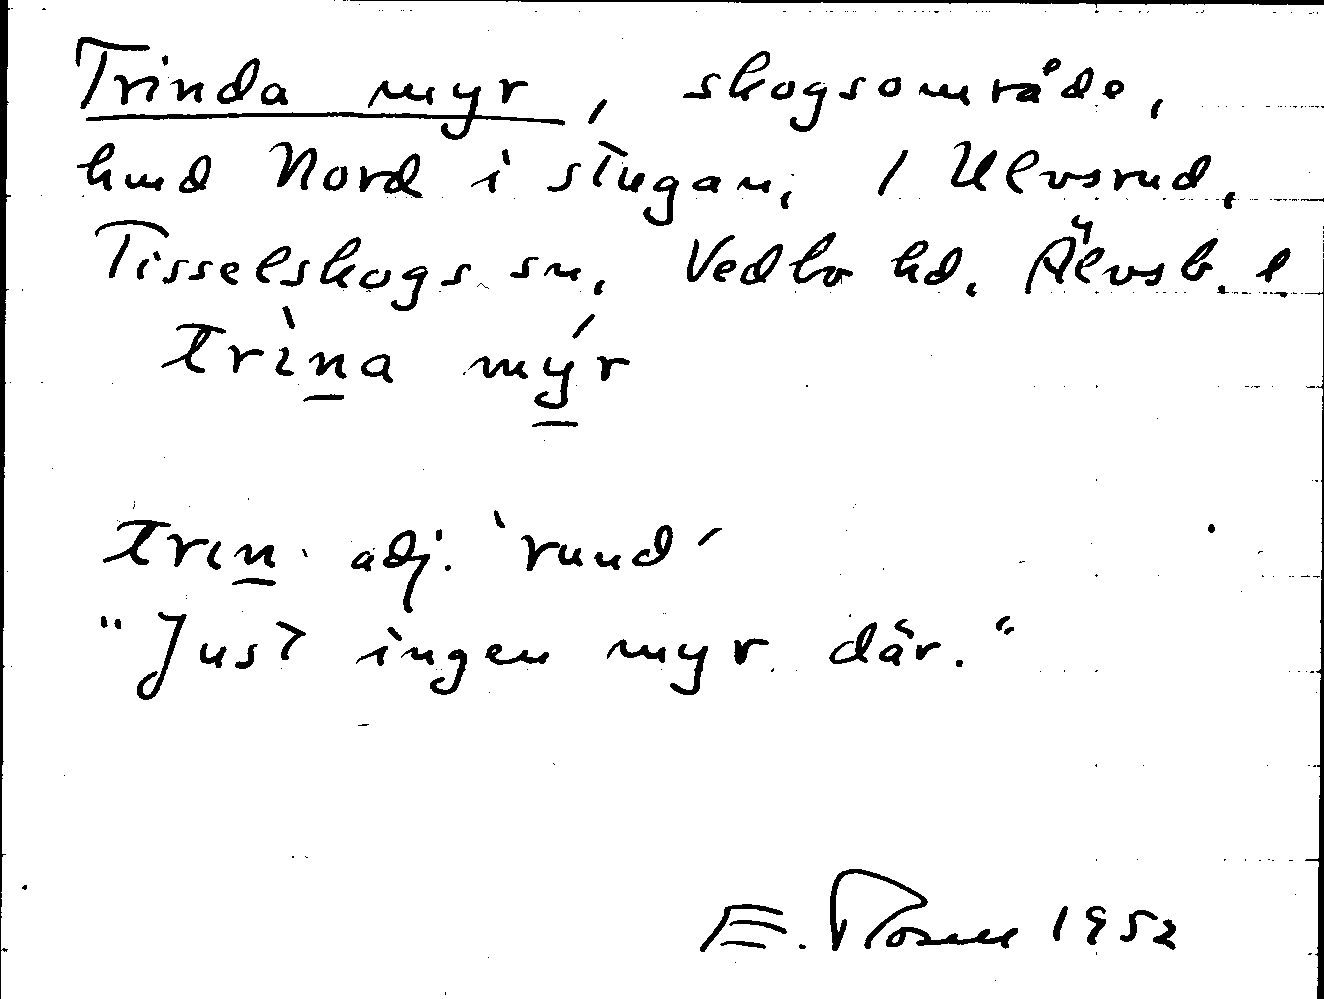 Trinda myr, skogsområde,
hmd Nord i stugan, 1 Ulvsrud,
Tisselskogs sn, Vedbo hd, Älvsb. l.
trìna mýr
trın adj. 'rund'
"Just ingen myr där."
E. Rosell 1952